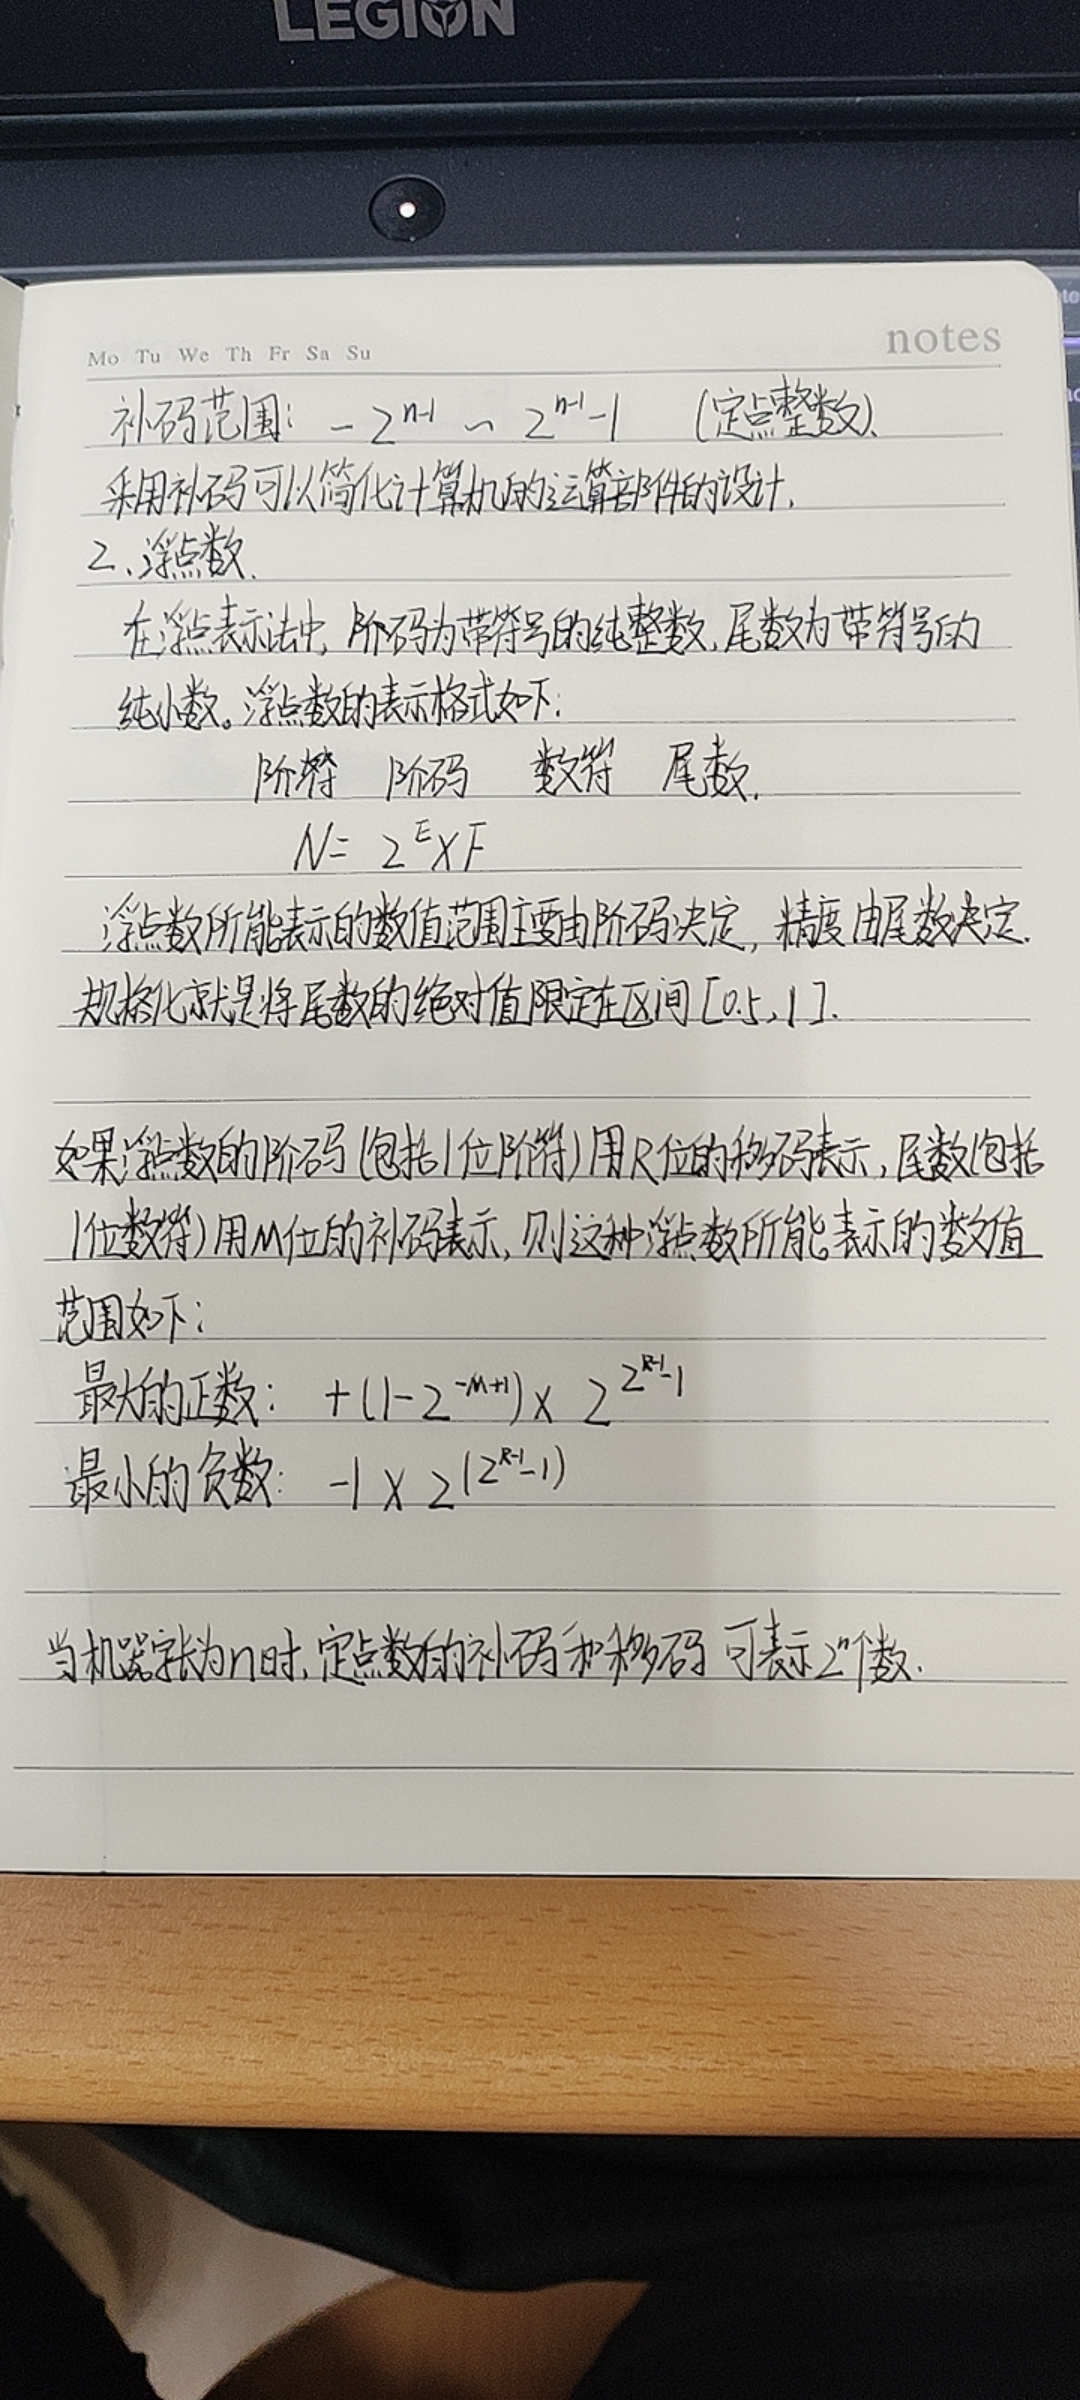 LEGION
notes
Mo Tu We Th Fr Sa Su
补码范围: -2^{n-1} ~ 2^{n-1}-1 (定点整数).
采用补码可以简化计算机的运算部件的设计.
2.浮点数.
在浮点表示法中,阶码为带符号的纯整数,尾数为带符号的
纯小数。浮点数的表示格式如下:
阶符 阶码 数符 尾数.
N= 2^E×F
浮点数所能表示的数值范围主要由阶码决定,精度由尾数决定.
规格化就是将尾数的绝对值限定在区间[0.5,1].
如果浮点数的阶码(包括1位阶符)用R位的移码表示,尾数(包括
1位数符)用M位的补码表示,则这种浮点数所能表示的数值
范围如下:
最大的正数: +(1-2^{-M+1})× 2^{2^{R-1}-1}
最小的负数: -1 × 2^{(2^{R-1}-1)}
当机器字长为n时,定点数的补码和移码可表示2^n个数.